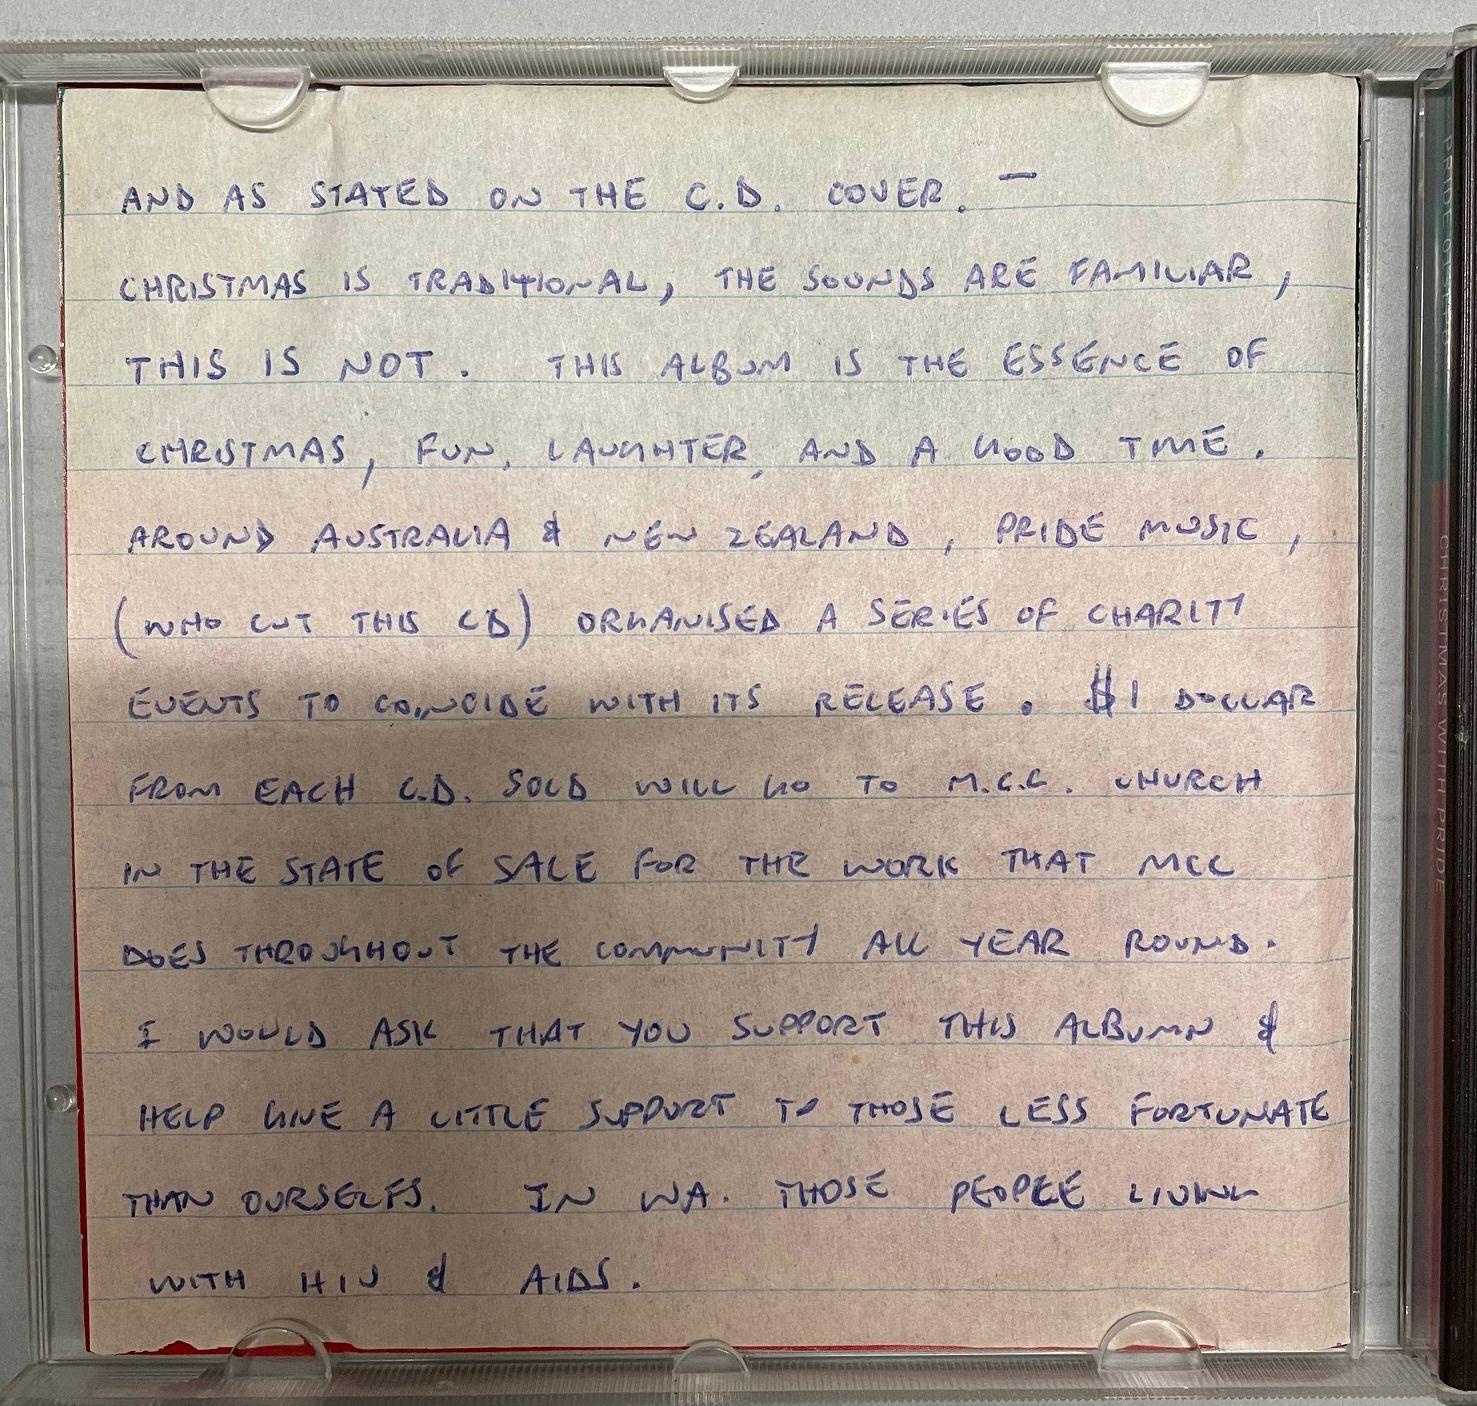 AND AS STATED ON THE C.D. COVER. —
CHRISTMAS IS TRADITIONAL, THE SOUNDS ARE FAMILIAR,
THIS IS NOT. THIS ALBUM IS THE ESSENCE OF
CHRISTMAS, FUN, LAUGHTER, AND A GOOD TIME.
AROUND AUSTRALIA & NEW ZEALAND, PRIDE MUSIC,
(WHO CUT THIS CD) ORGANISED A SERIES OF CHARITY
EVENTS TO COINCIDE WITH ITS RELEASE. $1 DOLLAR
FROM EACH C.D. SOLD WILL GO TO M.C.C. CHURCH
IN THE STATE OF SALE FOR THE WORK THAT MCC
DOES THROUGHOUT THE COMMUNITY ALL YEAR ROUND.
I WOULD ASK THAT YOU SUPPORT THIS ALBUMN &
HELP GIVE A LITTLE SUPPORT TO THOSE LESS FORTUNATE
THAN OURSELFS. IN WA. THOSE PEOPLE LIVING
WITH HIV & AIDS.
CHRISTMAS WITH PRIDE